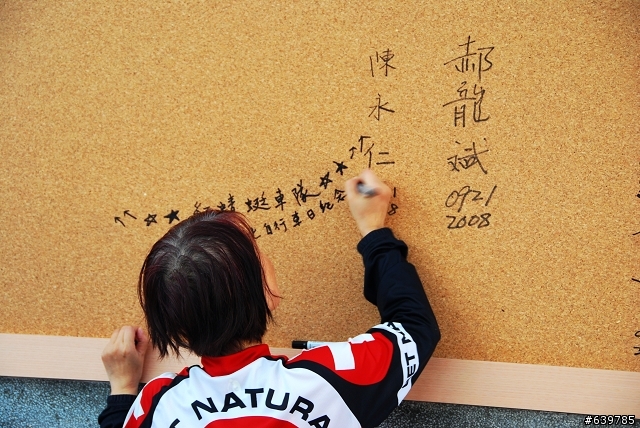 郝龍斌
0921
2008
陳永仁
↑↑☆★紅蜻蜓車隊☆★↑↑
自行車日紀念
T NATURA
ET MA
#639785